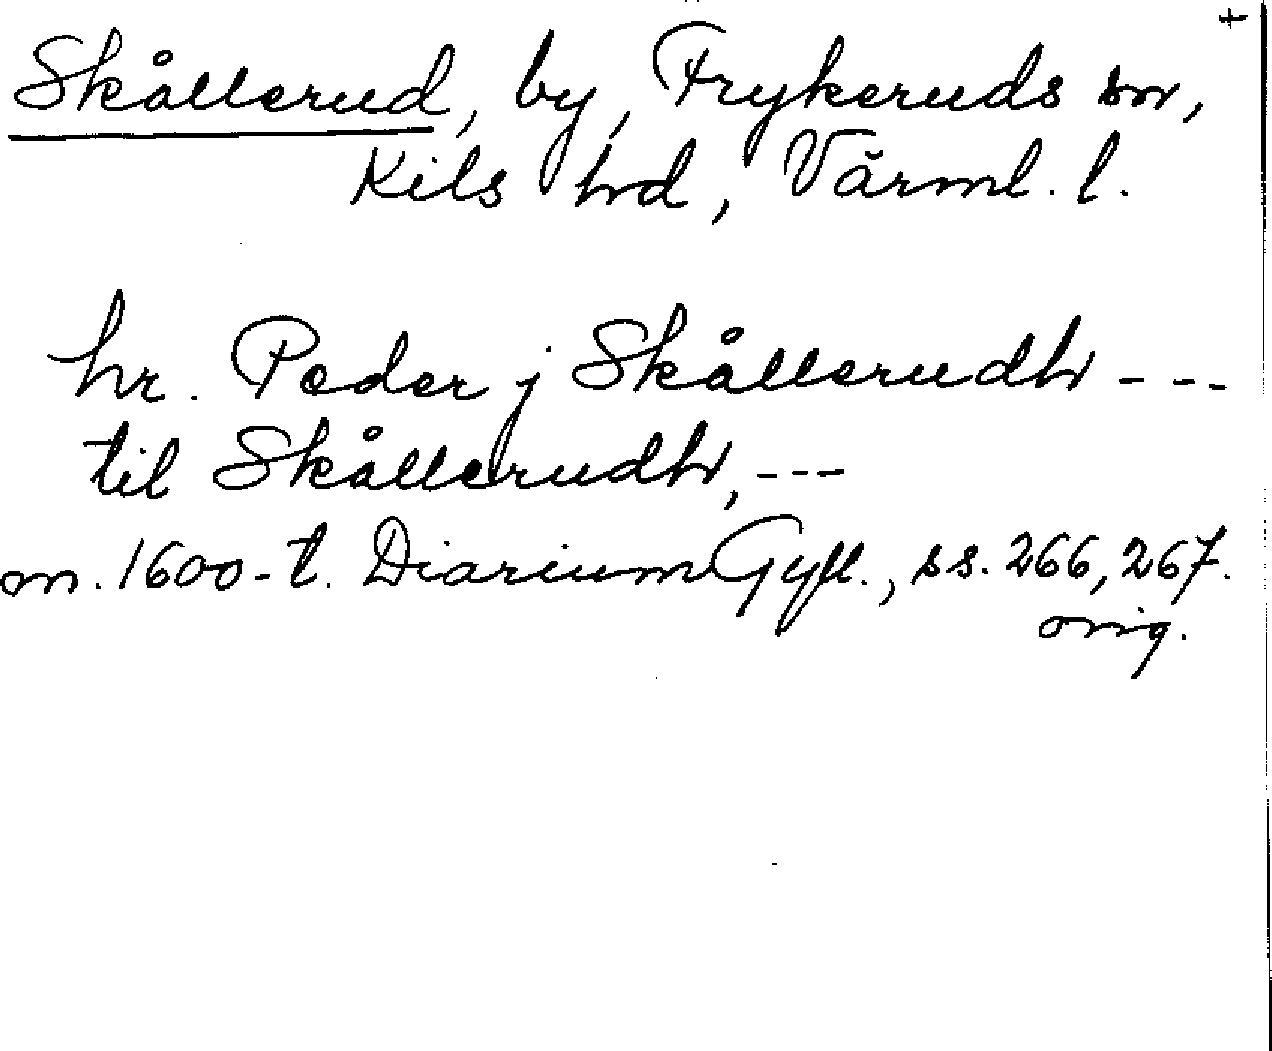 +
Skållerud, by, Frykeruds sn,
Kils hd, Värml. l.
hr. Peder j Skållerudh ---
til Skållerudh, ---
m. 1600-t. Diarium Gyll., ss. 266, 267.
orig.